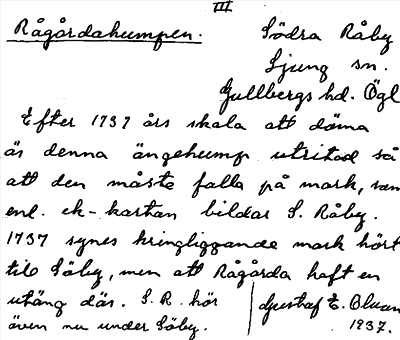 III
Rågårdahumpen.
Södra Råby
Ljung sn.
Gullbergs hd. Ögl
Efter 1737 års skala att döma
är denna ängehump utritad så
att den måste falla på mark, som
enl. ek-kartan bildar S. Råby.
1737 synes kringliggande mark hört
till Säby, men att Rågårda haft en
utäng där. S. R. hör
även nu under Säby.
Gustaf E. Bluan
1937.